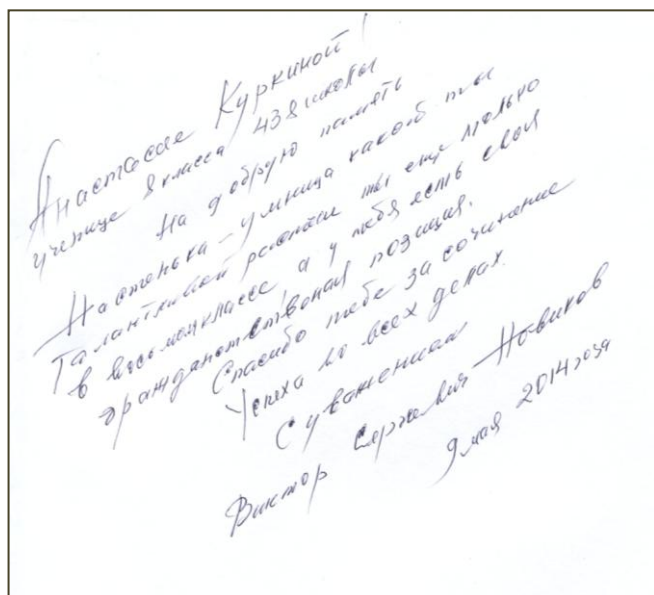 Анастасие Куркиной!
ученице 8 класса 438 школы
На добрую память
Настенька - умница какой ты
Талантливой растёшь ты ещё только
в восьмом классе, а у тебя есть своя
гражданственная позиция.
Спасибо тебе за сочинение
Успеха во всех делах.
С уважением
Виктор Сергеевич Новиков
9 мая 2014 года